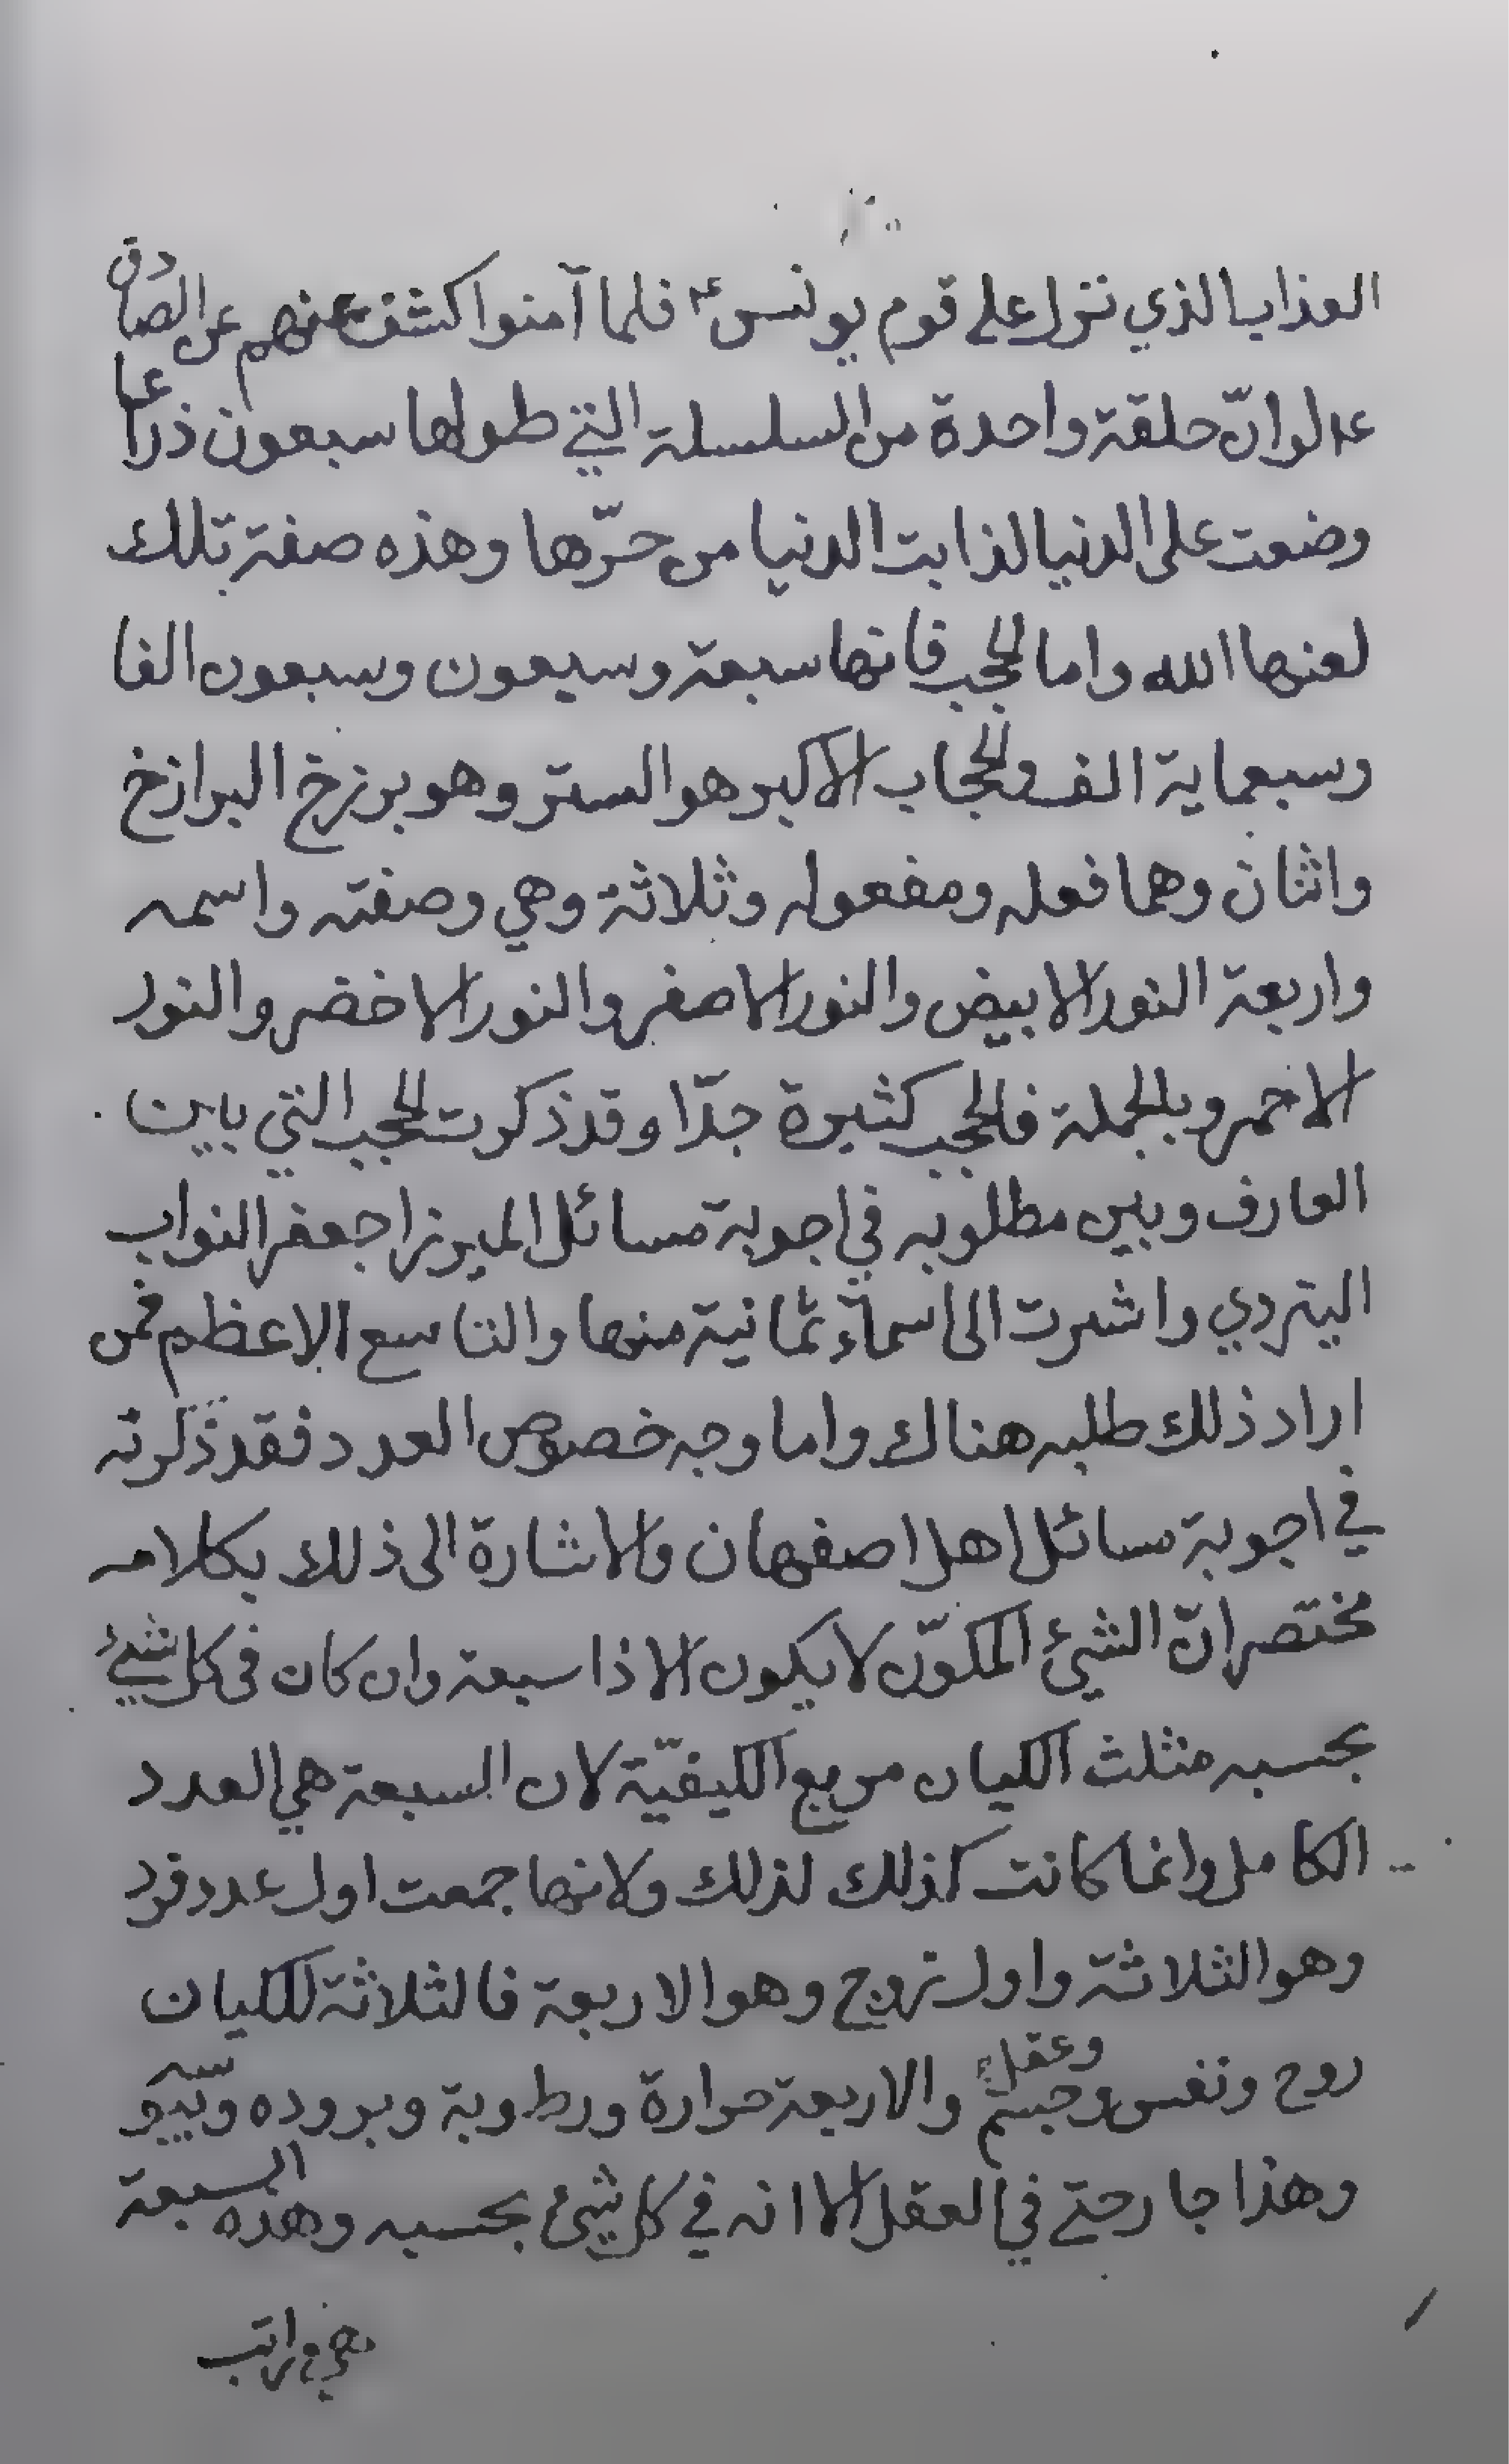 العذاب الذي نزل على قوم يونس ع۴ فلما آمنوا كشف عنهم عن الصادق
ع۴ لو انّ حلقة واحدة من السلسلة التي طولها سبعون ذراعا
وضعت على الدنيا لذابت الدنيا من حرّها وهذه صفة تلك
لعنها الله واما الحجب فانها سبعة وسبعون وسبعون الفا
وسبعماية الف والحجاب الاكبر هو الستر وهو برزخ البرازخ
واثنان وهما فعله ومفعوله وثلاثة وهي وصفته واسمه
واربعة النور الابيض والنور الاصفر والنور الاخضر والنور
الاحمر وبالجملة فالحجب كثيرة جدّا وقد ذكرت الحجب التي بين
العارف وبين مطلوبه في اجوبة مسائل الميرزا جعفر النواب
اليزدي واشرت الى اسماء ثمانية منها والتاسع الاعظم فمن
اراد ذلك طلبه هناك واما وجه خصوص العدد فقد ذكرته
في اجوبة مسائل اهل اصفهان والاشارة الى ذلك بكلام
مختصر انّ الشيئ المكوّن لا يكون الا ذا سبعة وان كان في كل شيئ
بحسبه مثلث الكيان مربع الكيفيّة لان السبعة هي العدد
الكامل وانما كانت كذلك لذلك ولانها جمعت اول عدد فرد
وهو الثلاثة واول زوج وهو الاربعة فالثلاثة للكيان
روح ونفس وجسم وعقل والاربعة حرارة ورطوبة وبروده ويبوسه
وهذا جار حتى في العقل الا انه في كل شئ بحسبه وهذه السبعة
هي مراتب